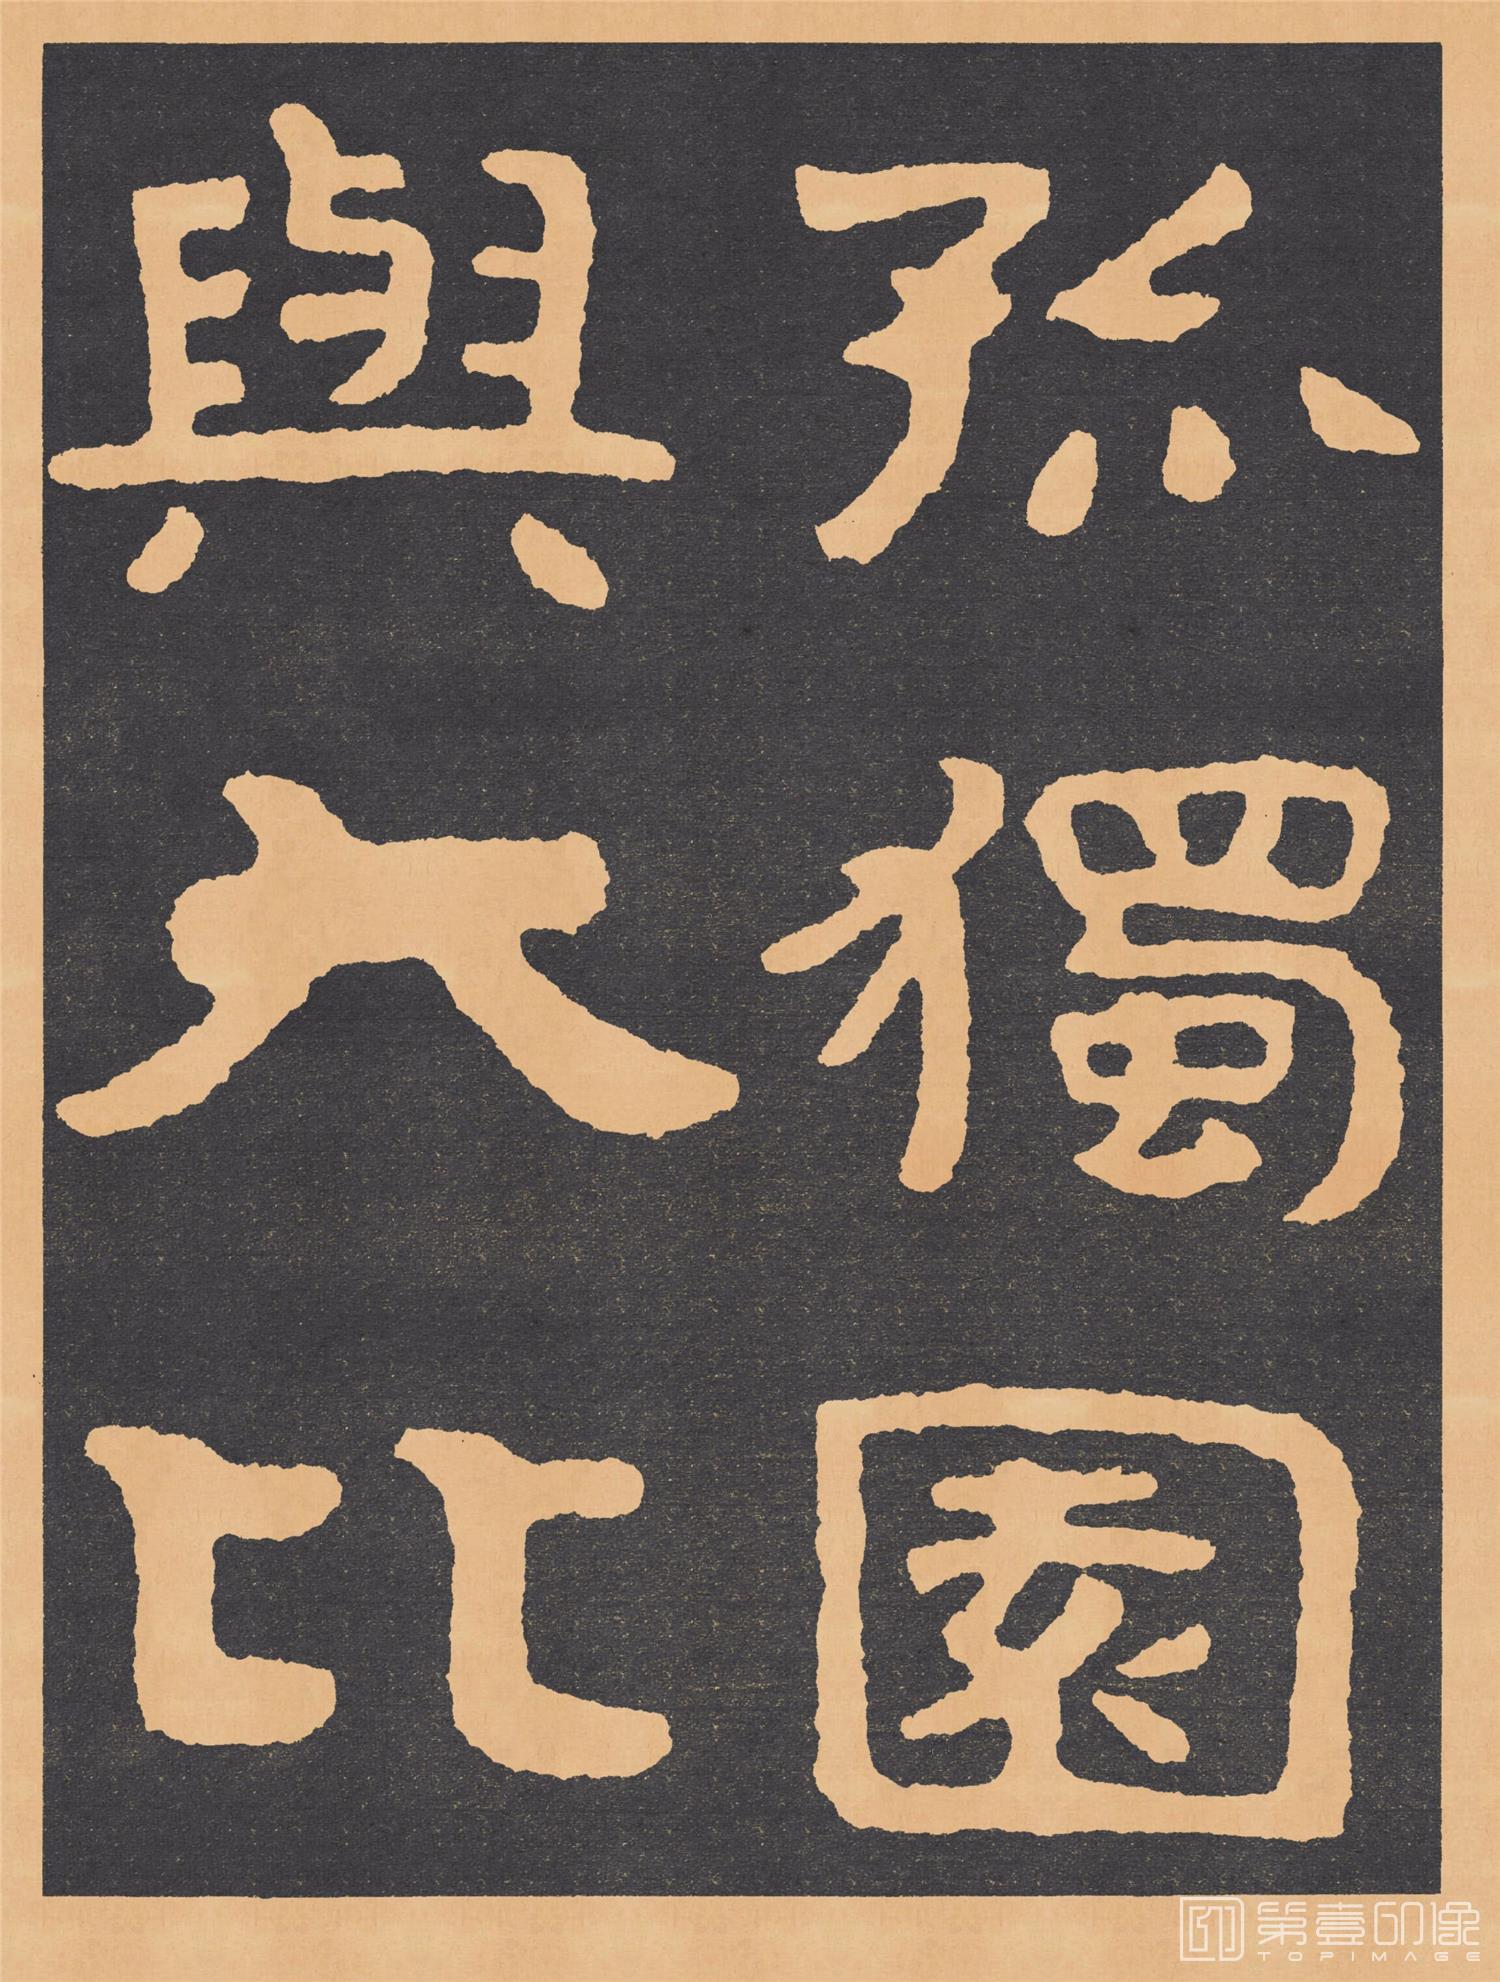 孤獨園
與大比
第壹印像
TOPIMAGE